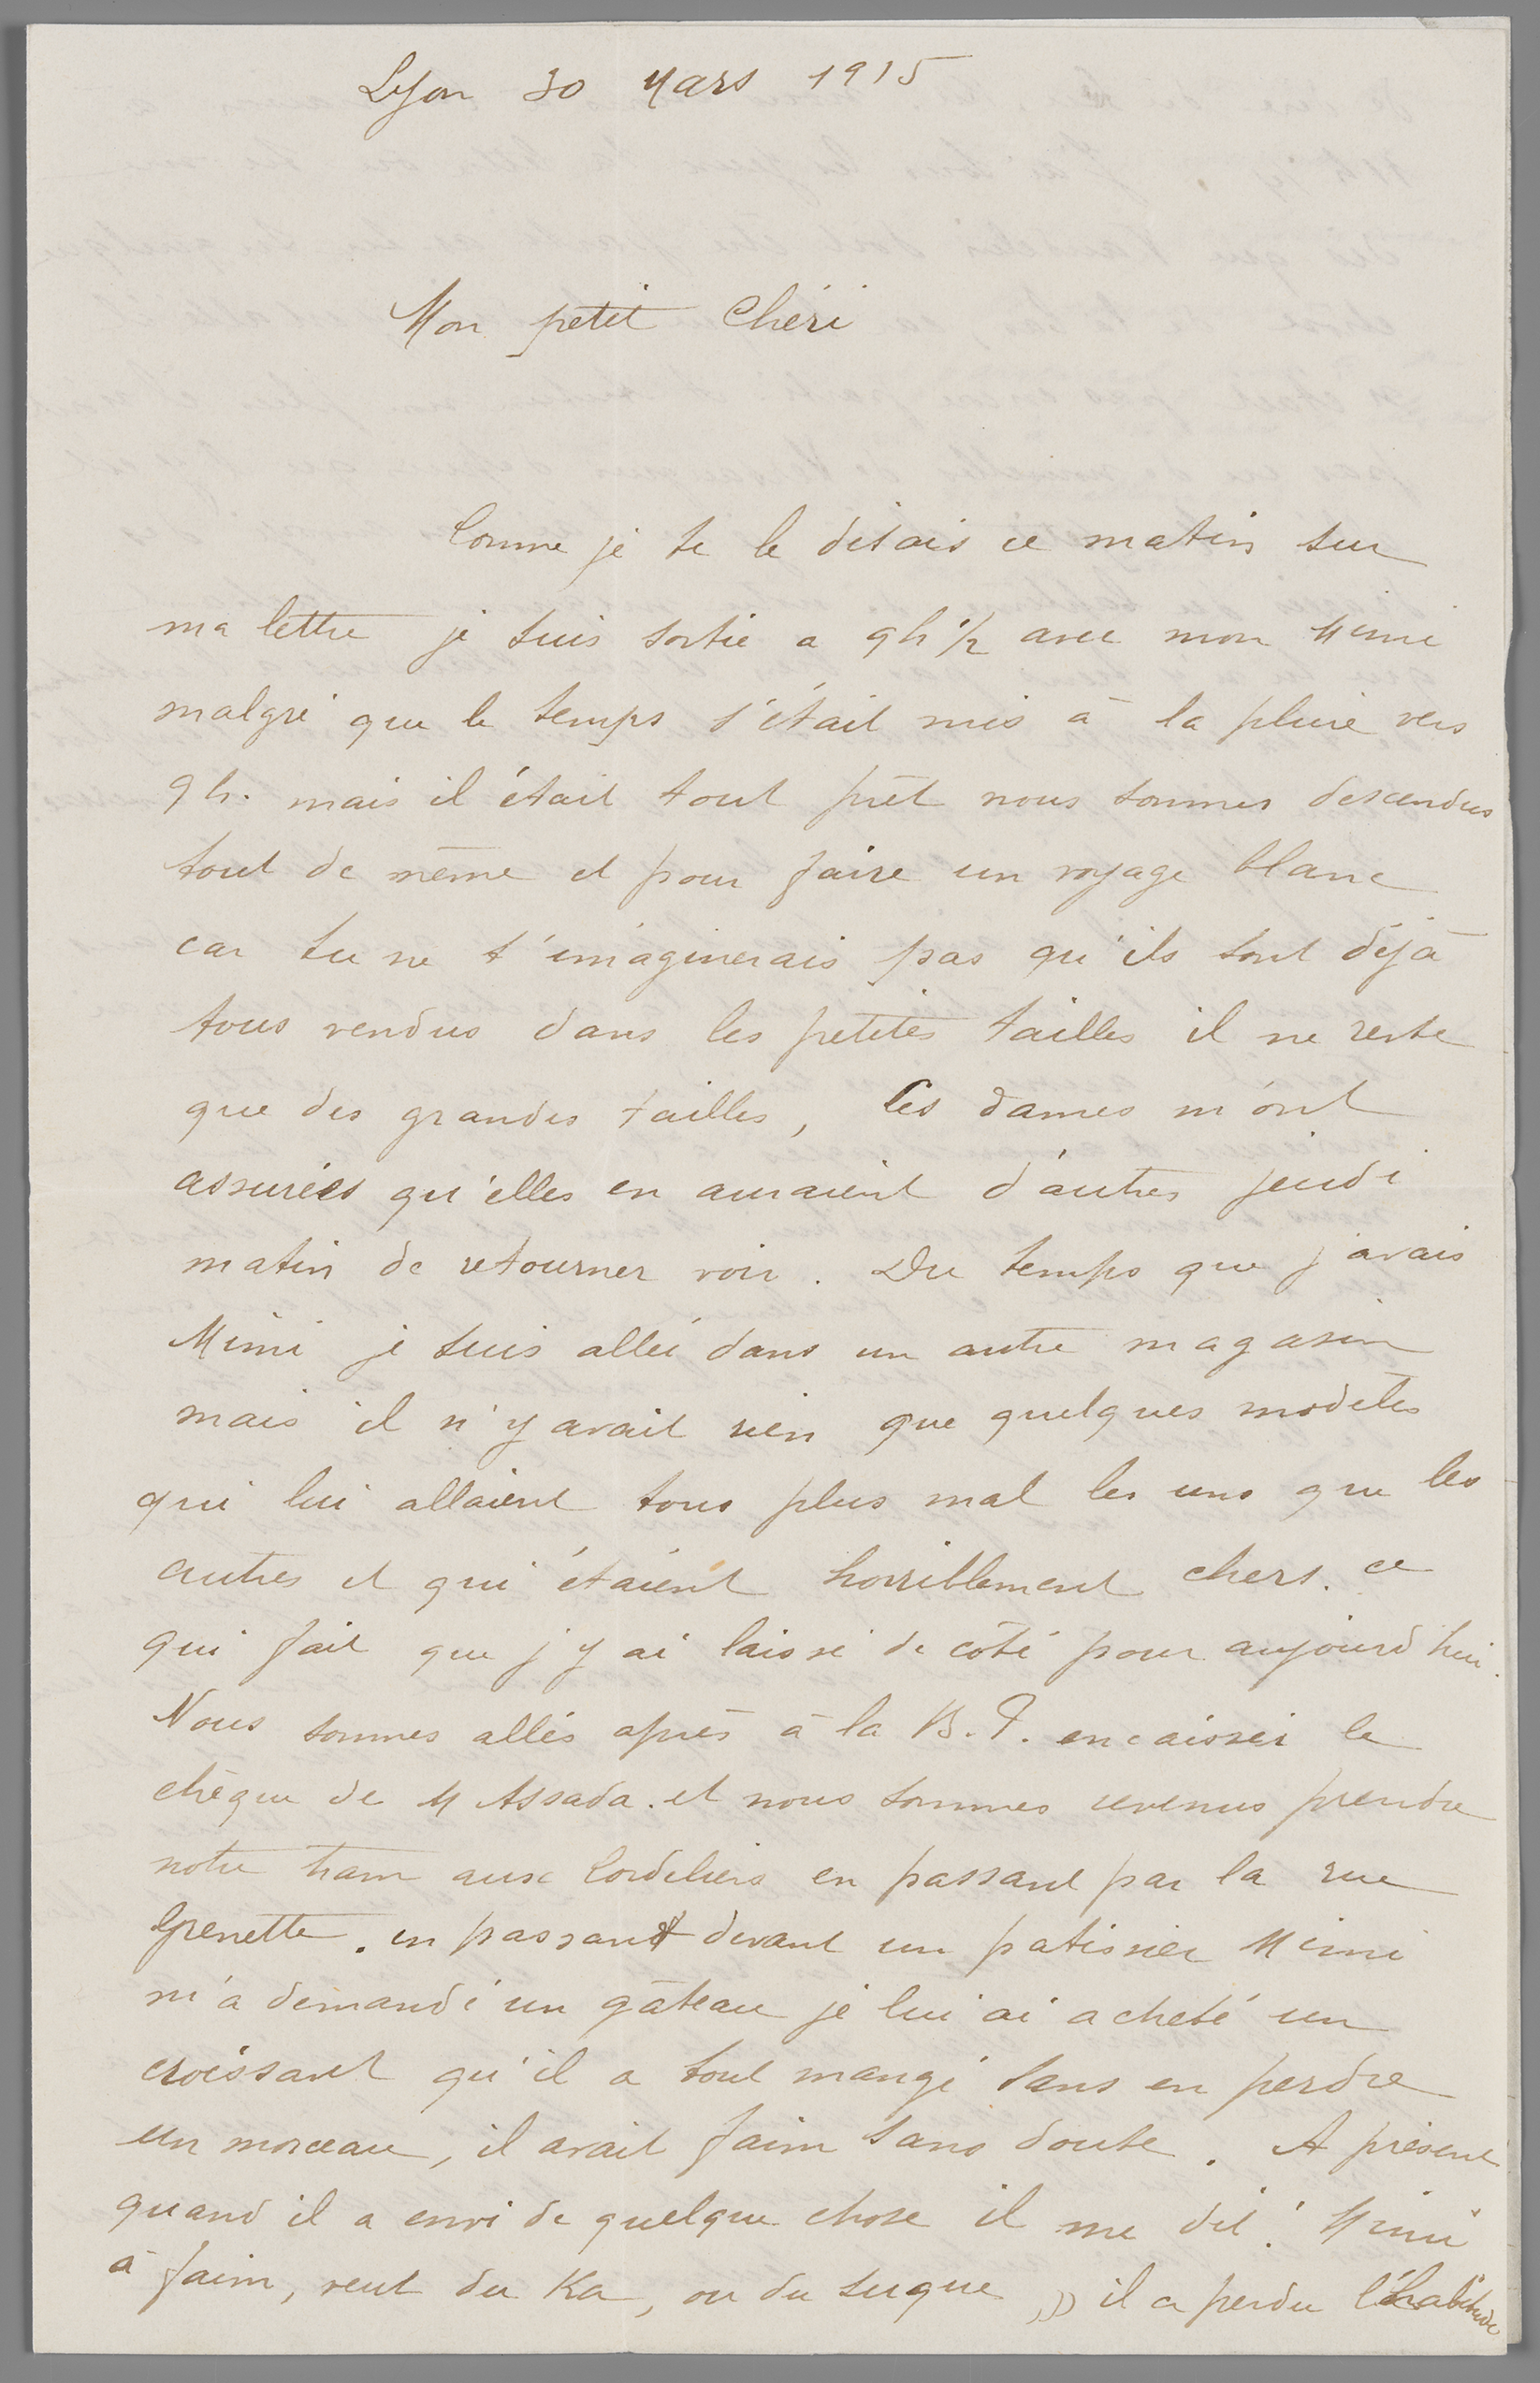 Lyon 30 Mars 1915
Mon petit Chéri
Comme je te le disais ce matin sur
ma lettre je suis sortie a 9h 1/2 avec mon Mimi
malgré que le temps s'était mis à la pluie vers
9h. mais il était tout prêt nous sommes descendus
tout de même et pour faire un voyage blanc
car tu ne t'imaginerais pas qu'ils sont déjà
tous vendus dans les petites tailles il ne reste
que des grandes tailles, les dames m'ont
assurées qu'elles en auraient d'autres jeudi
matin de retourner voir. Du temps que j'avais
Mimi je suis allée dans un autre magasin
mais il n'y avait rien que quelques modèles
qui lui allaient tous plus mal les uns que les
autres et qui étaient horriblement chers. ce
qui fait que j'y ai laissé de côté pour aujourd'hui.
Nous sommes allés après à la B.F. encaisser le
chèque de M Assada. et nous sommes revenus prendre
notre tram aux Cordeliers en passant par la rue
Grenette. en passant devant un patissier Mimi
m'a demandé un gâteau je lui ai acheté un
croissant qu'il a tout mangé sans en perdre
un morceau, il avait faim sans doute. A présent
quand il a envi de quelque chose il me dit: Mimi
à faim, veut du Ka, ou du suque ,)) il a perdu l'habitude